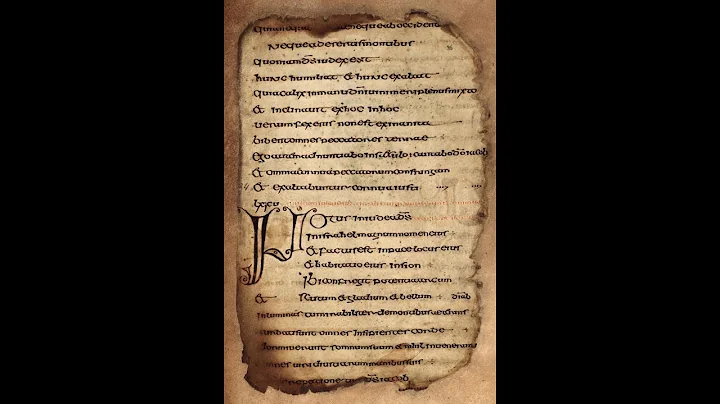 Neque a desertis montibus
quoniam d̄s iudex est
hunc humiliat & hunc exaltat
quia calix in manu dn̄i uini meri plenus mixto
& inclinauit ex hoc in hoc
uerum fex eius non est exinanita
bibent omnes peccatores terrae
ego autem adnuntiabo in saeculū cantabo dō iacob
& omnia cornua peccatorum confringam
& exaltabuntur cornua iusti
lxxu
Notus in iudea d̄s
in israhel magnum nomen eius
& factus est in pace locus eius
& habitatio eius in sion
ibi confregit potentias arcum
& scutum & gladium & bellum
inluminas tu mirabiliter de montibus aeternis
turbati sunt omnes insipientes corde
dormierunt somnum suum & nihil inuenerunt
omnes uiri diuitiarum manibus suis
d̄s iacob